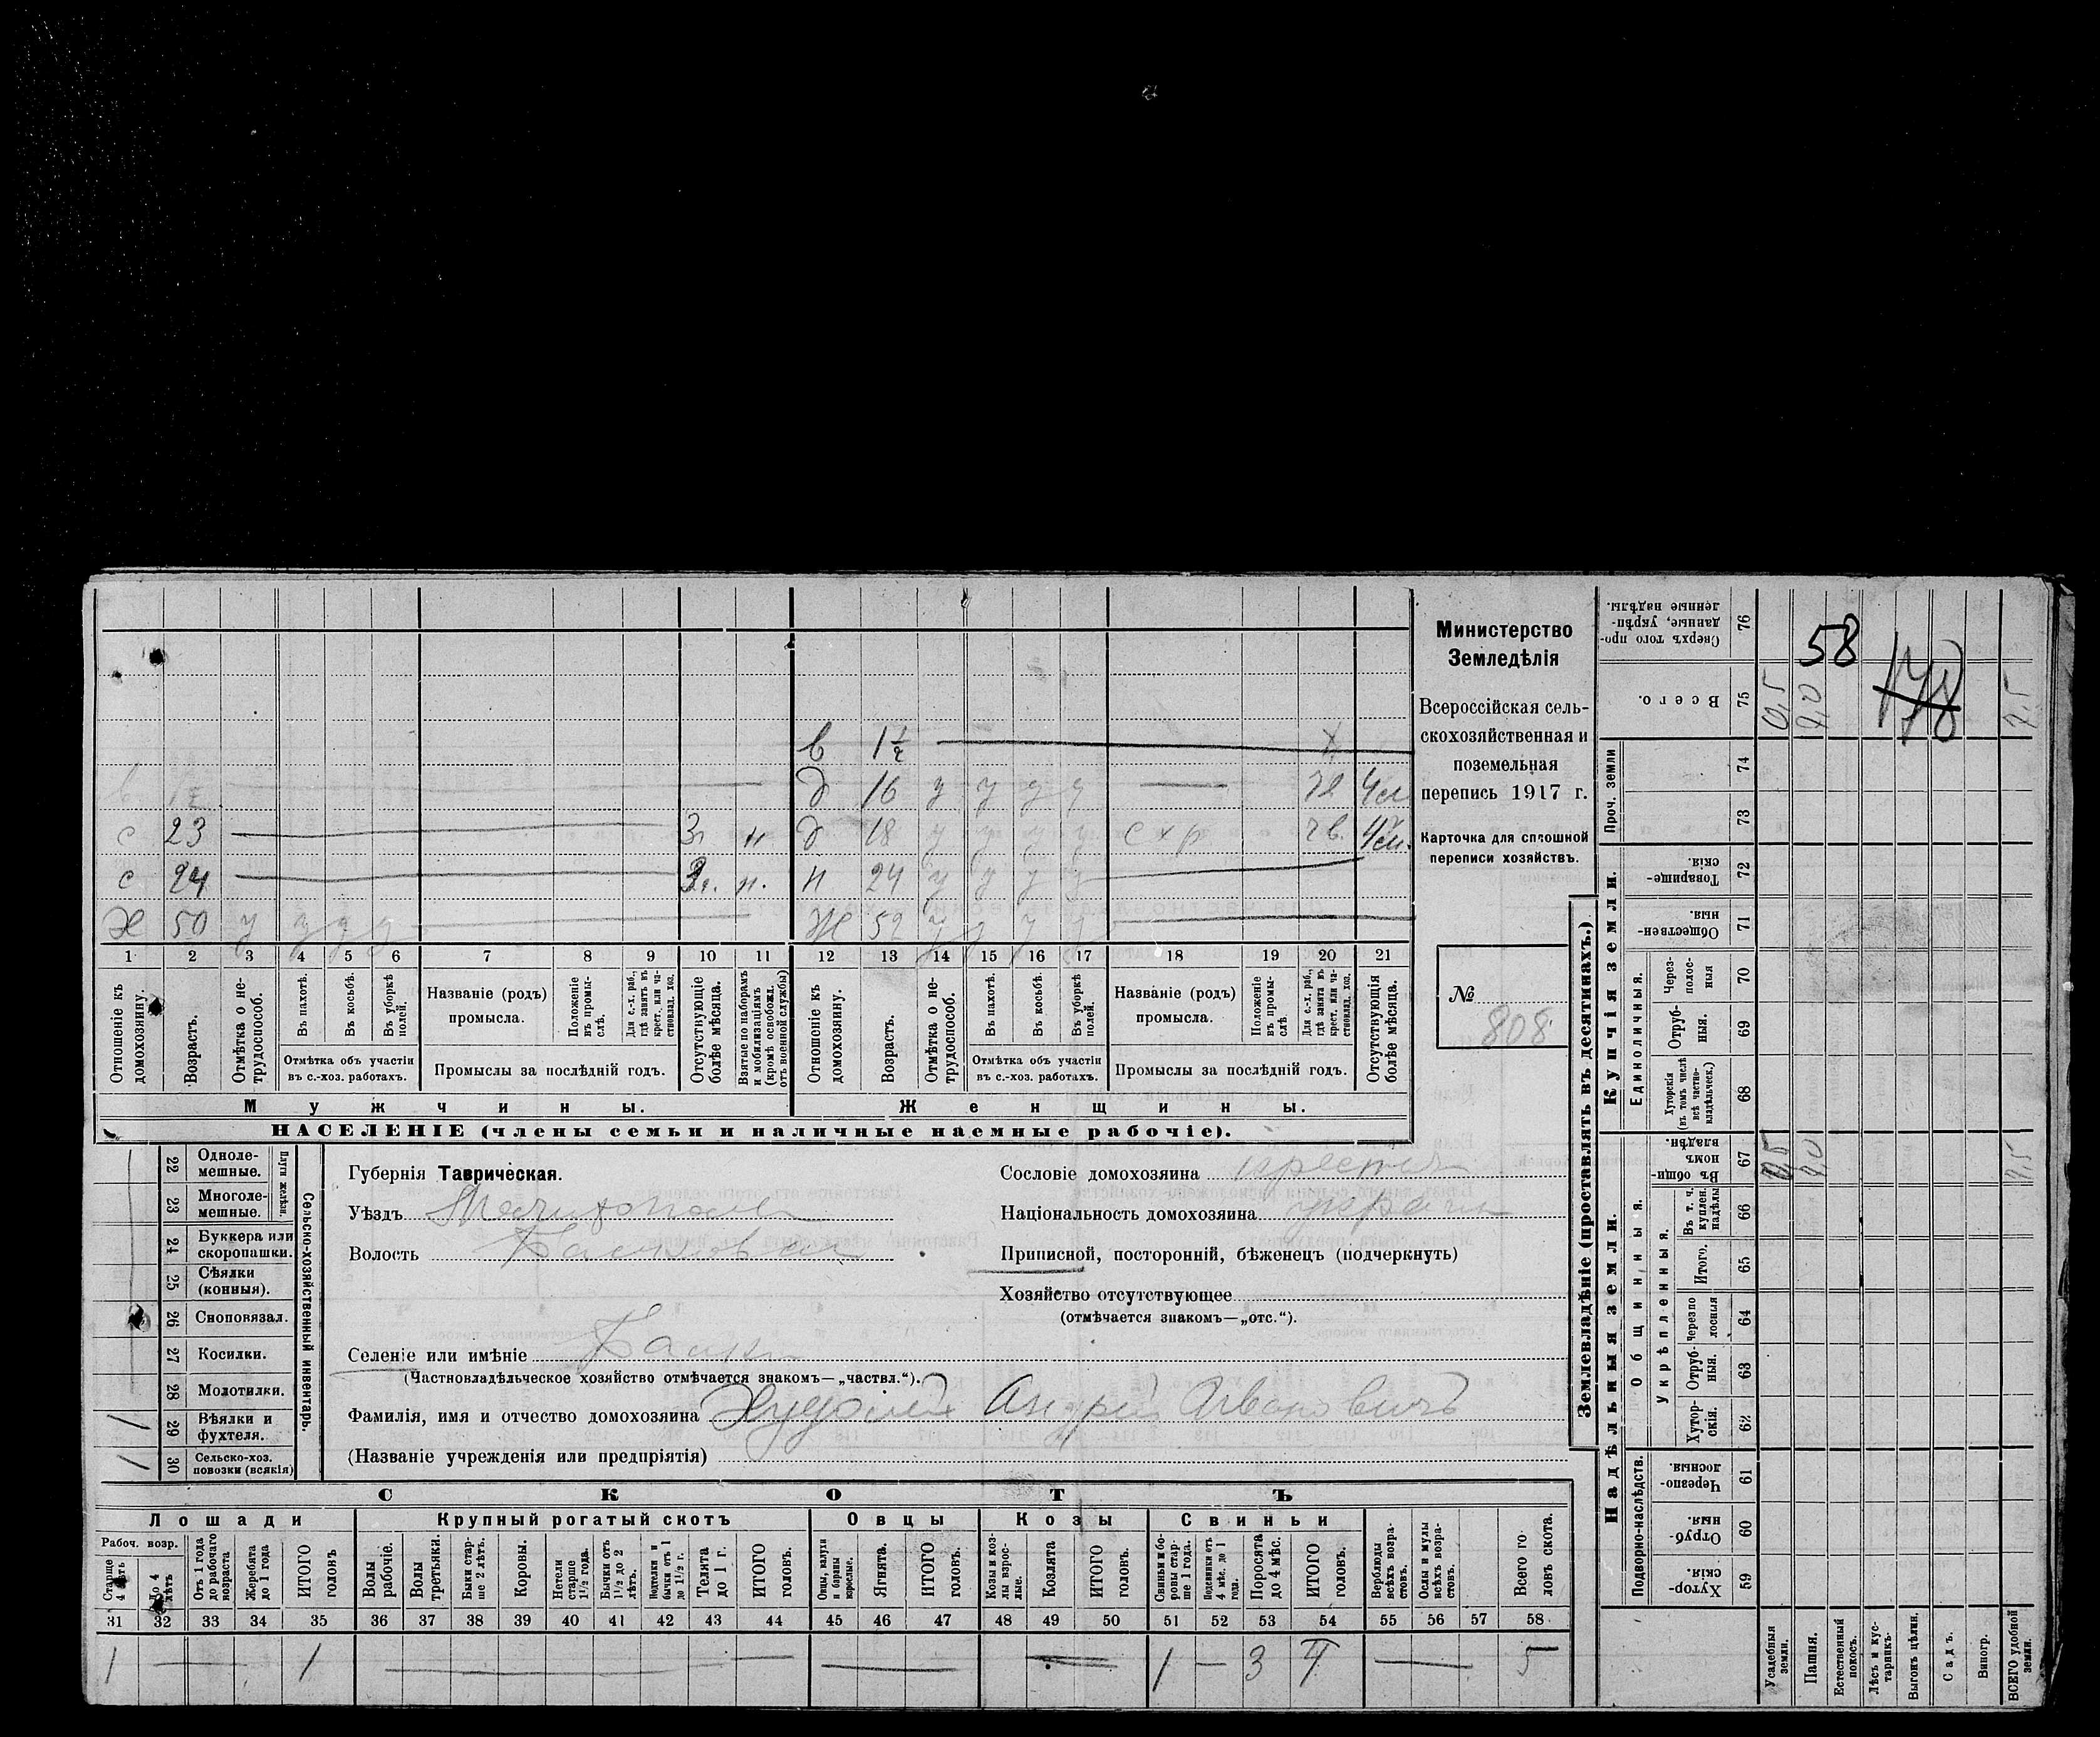 Министерство
Земледѣлія
Всероссійская сель-
скохозяйственная и
поземельная
перепись 1917 г.
Карточка для сплошной
переписи хозяйствъ.
№
808
в 1½
д 16 у у у у 4 м
с 23 3 г. н д 18 у у у у с х р 4 м.
с 24 3 г. н. н 24 у у у у
х 50 у у у у ж 52 у у у у
1 2 3 4 5 6 7 8 9 10 11 12 13 14 15 16 17 18 19 20 21
Отношеніе къ домохозяину.
Возрастъ.
Отмѣтка о не-трудоспособ.
Въ пахотѣ.
Въ косьбѣ.
Въ уборкѣ полей.
Отмѣтка объ участіи въ с.-хоз. работахъ.
Названіе (родъ) промысла.
Положеніе въ промы-слѣ.
Для с.-х. раб., гдѣ занятъ въ крест. или ча-ствовлад. хоз.
Промыслы за послѣдній годъ.
Отсутствующіе болѣе мѣсяца.
Взятые по наборамъ и мобилизаціямъ (кромѣ освобожд. отъ военной службы)
Отношеніе къ домохозяину.
Возрастъ.
Отмѣтка о не-трудоспособ.
Въ пахотѣ.
Въ косьбѣ.
Въ уборкѣ полей.
Отмѣтка объ участіи въ с.-хоз. работахъ.
Названіе (родъ) промысла.
Положеніе въ промы-слѣ.
Для с.-х. раб., гдѣ занята въ крест. или ча-ствовлад. хоз.
Промыслы за послѣдній годъ.
Отсутствующія болѣе мѣсяца.
Мужчины.
Женщины.
НАСЕЛЕНІЕ (члены семьи и наличные наемные рабочіе).
22 Одноле-мешные.
23 Многоле-мешные.
Плуги желѣзн.
24 Буккера или скоропашки.
25 Сѣялки (конныя).
26 Сноповязал.
27 Косилки.
28 Молотилки.
29 Вѣялки и фухтеля. 1
30 Сельско-хоз. повозки (всякія) 1
Сельско-хозяйственный инвентарь.
Губернія Таврическая.
Уѣздъ Мелитополь
Волость Балковская
Селеніе или имѣніе Балки
(Частновладѣльческое хозяйство отмѣчается знакомъ—„частвл.“).
Фамилія, имя и отчество домохозяина Худолій Андрей Ивановичъ
(Названіе учрежденія или предпріятія)
Сословіе домохозяина крестья
Національность домохозяина украин
Приписной, посторонній, бѣженецъ (подчеркнуть)
Хозяйство отсутствующее
(отмѣчается знакомъ—„отс.“).
СКОТЪ
Лошади
Крупный рогатый скотъ
Овцы
Козы
Свиньи
Рабоч. возр.
Старше 4 лѣтъ
До 4 лѣтъ
Отъ 1 года до рабочаго возраста
Жеребята до 1 года
ИТОГО головъ
Волы рабочіе.
Волы третьяки.
Быки стар-ше 2 лѣтъ.
Коровы.
Нетели старше 1½ года.
Бычки отъ 1½ до 2 лѣтъ.
Подтелки и бычки отъ 1 до 1½ г.
Телята до 1 г.
ИТОГО головъ.
Овцы, валухи и бараны взрослые.
Ягнята.
ИТОГО головъ.
Козы и коз-лы взрос-лые.
Козлята
ИТОГО головъ.
Свиньи и бо-ровы стар-ше 1 года.
Подсвинки отъ 4 мѣс. до 1 года.
Поросята до 4 мѣс.
ИТОГО головъ.
Верблюды всѣхъ возра-стовъ.
Ослы и мулы всѣхъ возра-стовъ.
Всего го-ловъ скота.
31 32 33 34 35 36 37 38 39 40 41 42 43 44 45 46 47 48 49 50 51 52 53 54 55 56 57 58
1 — — 1 — — — 1 — 3 4 — 5
Землевладѣніе (проставлять въ десятинахъ.)
Надѣльныя земли.
Купчія земли.
Проч. земли
Подворно-наслѣдств.
Общинныя.
Укрѣпленныя.
Единоличныя.
76 Сверхъ того про-данные, укрѣп-ленные надѣлы.
58
178
75 Всего. 0,5 7,0 7,5
74
73
72 Товарище-скія.
71 Обществен-ныя.
70 Через-полос-ныя
69 Отруб-ныя.
68 Хуторскія (въ томъ числѣ всѣ частно-владѣльческ.)
67 Въ общи-номъ владѣн. 0,5 7,0 7,5
66 Въ т. ч. куплен. надѣлы
65 Итого.
64 черезпо-лосныя
63 Отруб-ныя.
62 Хутор-скія.
61 Черезпо-лосныя.
60 Отруб-ныя.
59 Хутор-скія.
Усадебныя земли.
Пашня.
Естественный покосъ.
Лѣсъ и кус-тарникъ.
Выгонъ цѣлин.
Садъ.
Виногр.
ВСЕГО удобной земли.